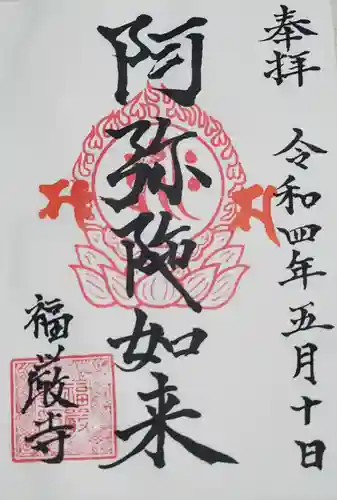 奉拝
令和四年五月十日
阿弥陀如来
福厳寺